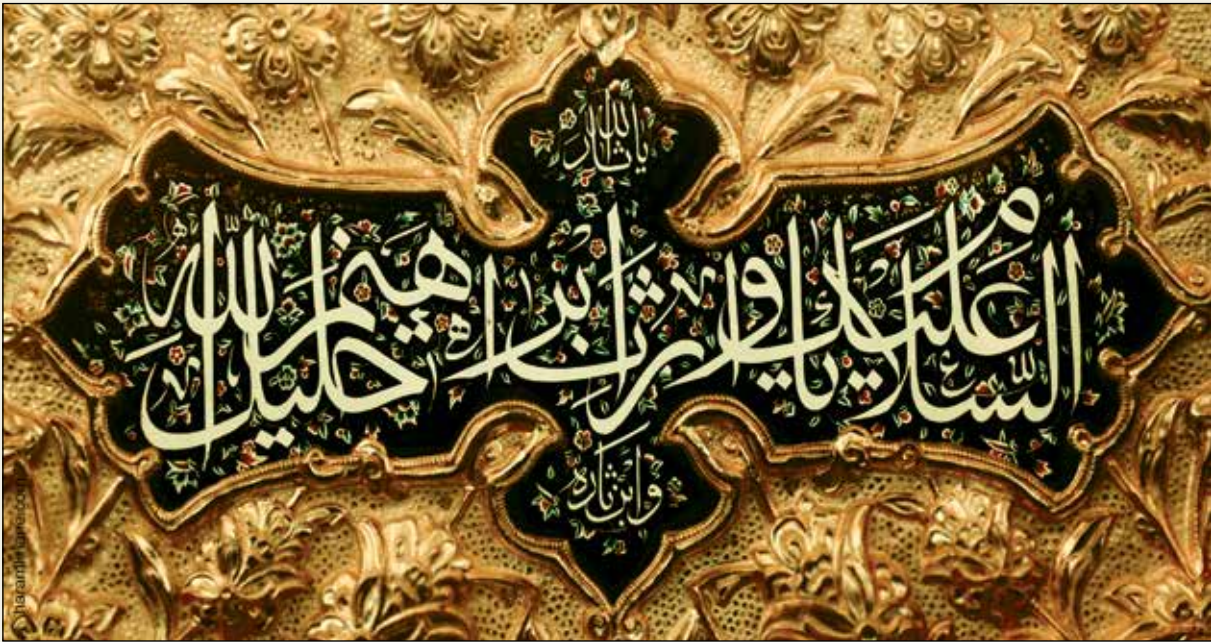 يا ثار الله
السلام عليك يا وارث ابراهيم خليل الله
وابن ثاره